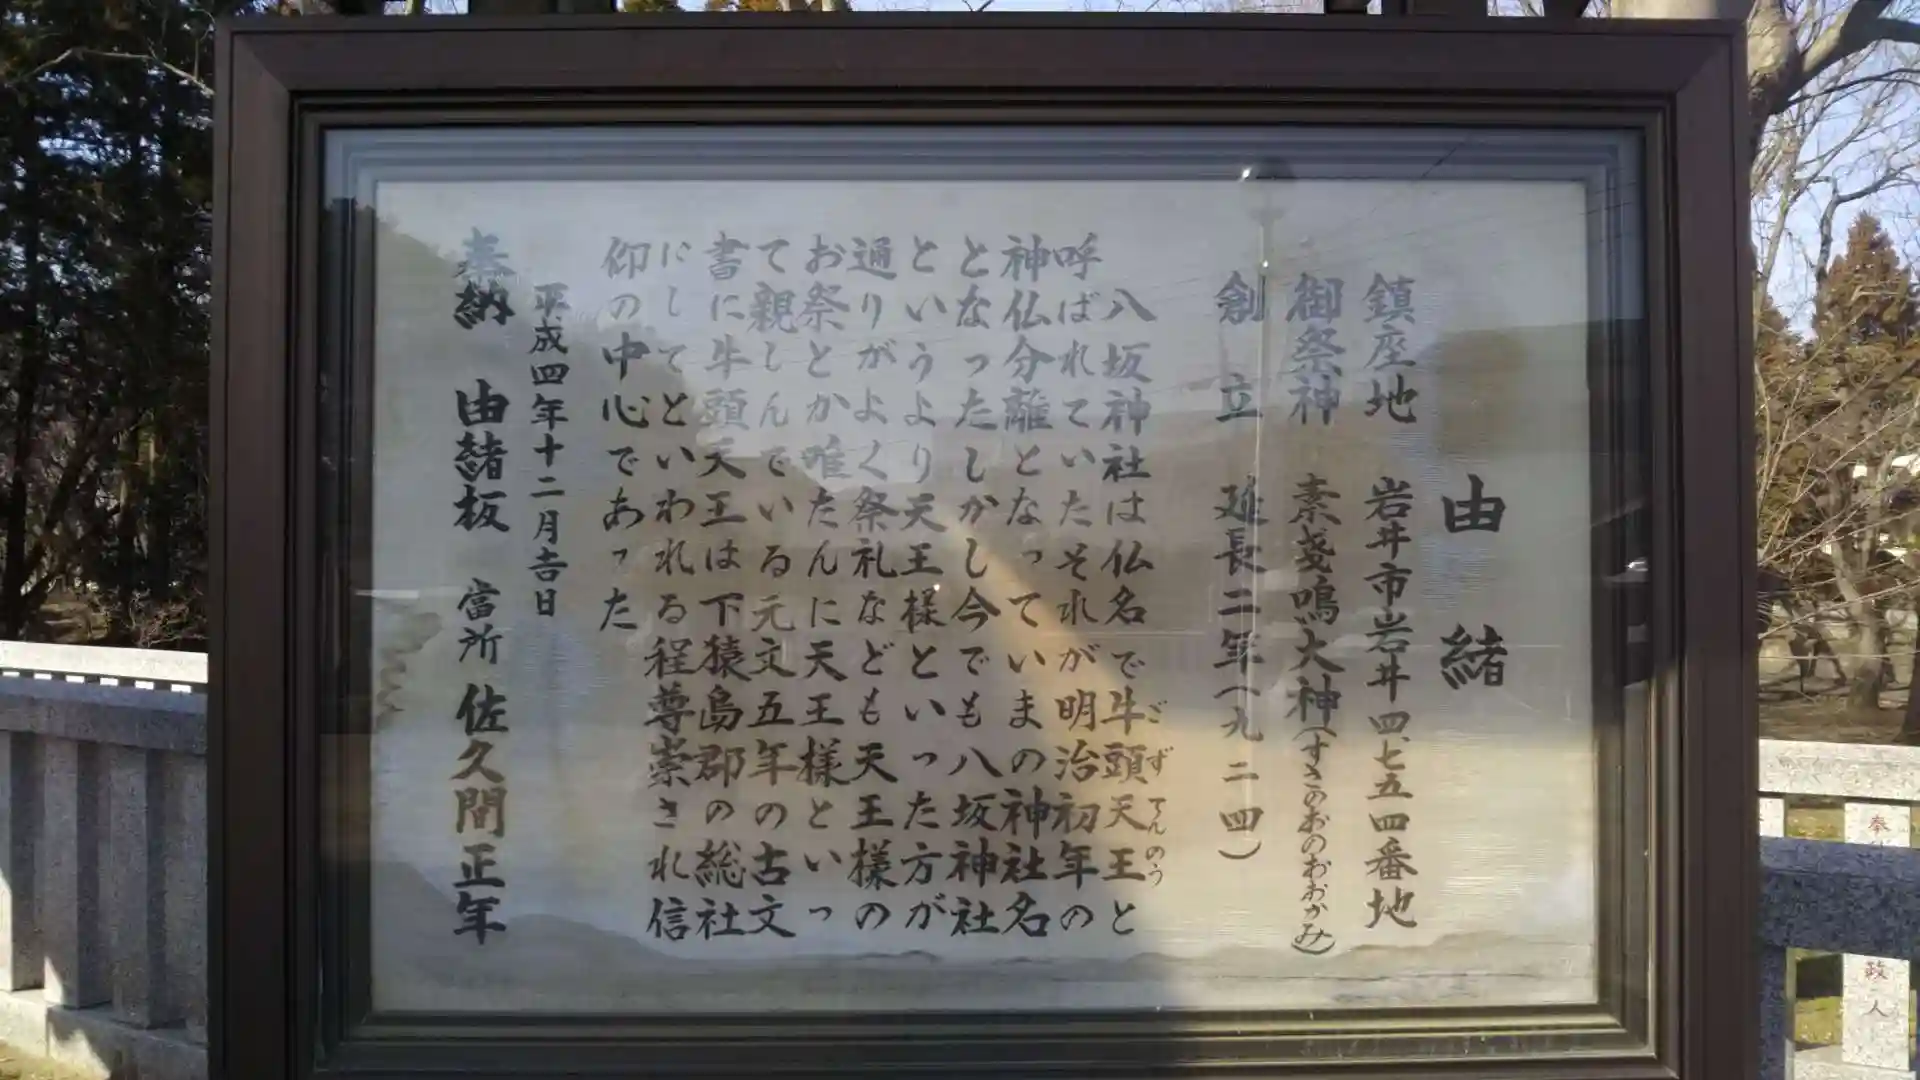 由緒
鎮座地 岩井市岩井四、七五四番地
御祭神 素戔嗚大神(すさのおのおおかみ)
創立 延長二年(九二四)
八坂神社は仏名で牛頭天王と
ごずてんのう
呼ばれていたそれが明治初年の
神仏分離となっていまの神社名
となったしかし今でも八坂神社
というより天王様といった方が
通りがよく祭礼なども天王様の
お祭とか唯たんに天王様といっ
て親しんでいる元文五年の古文
書に牛頭天王は下猿島郡の総社
にしてといわれる程尊崇され信
仰の中心であった
平成四年十二月吉日
奉納 由緒板 當所 佐久間正年
奉
政人